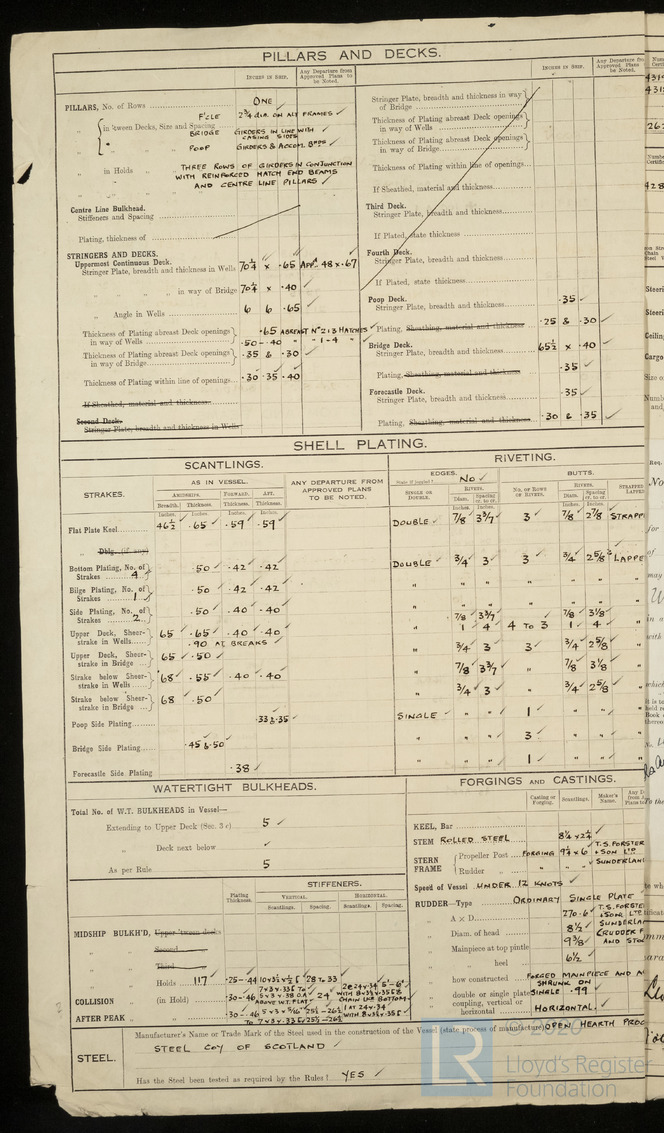 PILLARS AND DECKS.
INCHES IN SHIP.
Any Departure from Approved Plans to be Noted.
PILLARS, No. of Rows ONE ✓
F'CLE 2¾ dia. ON ALT FRAMES ✓
" in 'tween Decks, Size and Spacing BRIDGE GIRDERS IN LINE WITH CASING SIDES ✓
" POOP GIRDERS & ACCOM. BHDS ✓
" in Holds THREE ROWS OF GIRDERS IN CONJUNCTION
WITH REINFORCED HATCH END BEAMS
AND CENTRE LINE PILLARS ✓
Centre Line Bulkhead.
Stiffeners and Spacing
Plating, thickness of
STRINGERS AND DECKS.
Uppermost Continuous Deck.
Stringer Plate, breadth and thickness in Wells 70¼ x .65 APPd. 48 x .67
" " " " in way of Bridge 70¼ x .40 ✓
" Angle in Wells 6 6 .65 ✓
Thickness of Plating abreast Deck openings in way of Wells .65 ABREAST Nos 2 & 3 HATCHES ✓
.50 - .40 " " 1 - 4 " ✓
Thickness of Plating abreast Deck openings in way of Bridge .35 & .30 ✓
Thickness of Plating within line of openings .30 .35 .40
If Sheathed, material and thickness
Second Deck.
Stringer Plate, breadth and thickness in Wells
INCHES IN SHIP.
Any Departure from Approved Plans to be Noted.
Stringer Plate, breadth and thickness in way of Bridge
Thickness of Plating abreast Deck openings in way of Wells
Thickness of Plating abreast Deck openings in way of Bridge
Thickness of Plating within line of openings
If Sheathed, material and thickness
Third Deck.
Stringer Plate, breadth and thickness
If Plated, state thickness
Fourth Deck.
Stringer Plate, breadth and thickness
If Plated, state thickness
Poop Deck.
Stringer Plate, breadth and thickness .35 ✓
Plating, Sheathing, material and thickness .25 & .30 ✓
Bridge Deck.
Stringer Plate, breadth and thickness 65½ x .40 ✓
Plating, Sheathing, material and thickness .35 ✓
Forecastle Deck.
Stringer Plate, breadth and thickness .35 ✓
Plating, Sheathing, material and thickness .30 & .35 ✓
SHELL PLATING.
SCANTLINGS.
RIVETING.
STRAKES.
AS IN VESSEL.
AMIDSHIPS. FORWARD. AFT.
Breadth. Thickness. Thickness. Thickness.
Inches. Inches. Inches. Inches.
ANY DEPARTURE FROM APPROVED PLANS TO BE NOTED.
EDGES.
State if joggled? No ✓
SINGLE OR DOUBLE.
RIVETS.
Diam. Spacing cr. to cr.
BUTTS.
NO. OF ROWS OF RIVETS.
RIVETS.
Diam. Spacing cr. to cr.
Flat Plate Keel 46½ .65 .59 .59 DOUBLE ✓ 7/8 3 3/7 3 7/8 2 7/8
" Dblg. (if any)
Bottom Plating, No. of Strakes 4 .50 .42 .42 DOUBLE ✓ 3/4 3 3 3/4 2 5/8
Bilge Plating, No. of Strakes 1 .50 .42 .42 " " " " " "
Side Plating, No. of Strakes 2 .50 .40 .40 " " " " " "
Upper Deck, Sheerstrake in Wells 65 .65 .40 .40 " 7/8 1 3 3/7 4 4 TO 3 7/8 1 3 1/8 4
.90 AT BREAKS ✓
Upper Deck, Sheerstrake in Bridge 65 .50 " 3/4 3 3 3/4 2 5/8
Strake below Sheerstrake in Wells 68 .55 .40 .40 " 7/8 3 3/7 " 7/8 3 1/8
Strake below Sheerstrake in Bridge 68 .50 " 3/4 3 " 3/4 2 5/8
Poop Side Plating .33 & .35 SINGLE ✓ " " 1 " "
Bridge Side Plating .45 & .50 " " " 3 " "
Forecastle Side Plating .38 " " " 1 " "
WATERTIGHT BULKHEADS.
Total No. of W.T. BULKHEADS in Vessel—
Extending to Upper Deck (Sec. 3 c) 5 ✓
" Deck next below ✓
As per Rule 5
STIFFENERS.
Plating Thickness.
VERTICAL. HORIZONTAL.
Scantlings. Spacing. Scantlings. Spacing.
MIDSHIP BULKH'D, Upper 'tween decks
" Second
" Third
" Holds 117 ✓ .25-.44
COLLISION " (in Hold) .30-.46 24
AFTER PEAK " .30 .46
FORGINGS AND CASTINGS.
Casting or Forging. Scantlings. Maker's Name.
KEEL, Bar
STEM ROLLED STEEL 8¼ x 2¼ ✓
STERN FRAME Propeller Post FORGING 9¼ x 6 T.S. FORSTER & SON LTD SUNDERLAND
Rudder " " "
Speed of Vessel UNDER 12 KNOTS ✓
RUDDER—Type ORDINARY SINGLE PLATE
" A x D 270.6
" Diam. of head 8½
Mainpiece at top pintle 9 3/8
" heel 6½
" how constructed FORGED MAINPIECE AND
SHRUNK ON
" double or single plate SINGLE .99 ✓
" coupling, vertical or horizontal HORIZONTAL.
STEEL.
Manufacturer's Name or Trade Mark of the Steel used in the construction of the Vessel (state process of manufacture) OPEN HEARTH
STEEL COY OF SCOTLAND ✓
Has the Steel been tested as required by the Rules? YES ✓
LR
© 2020
Lloyd's Register
Foundation